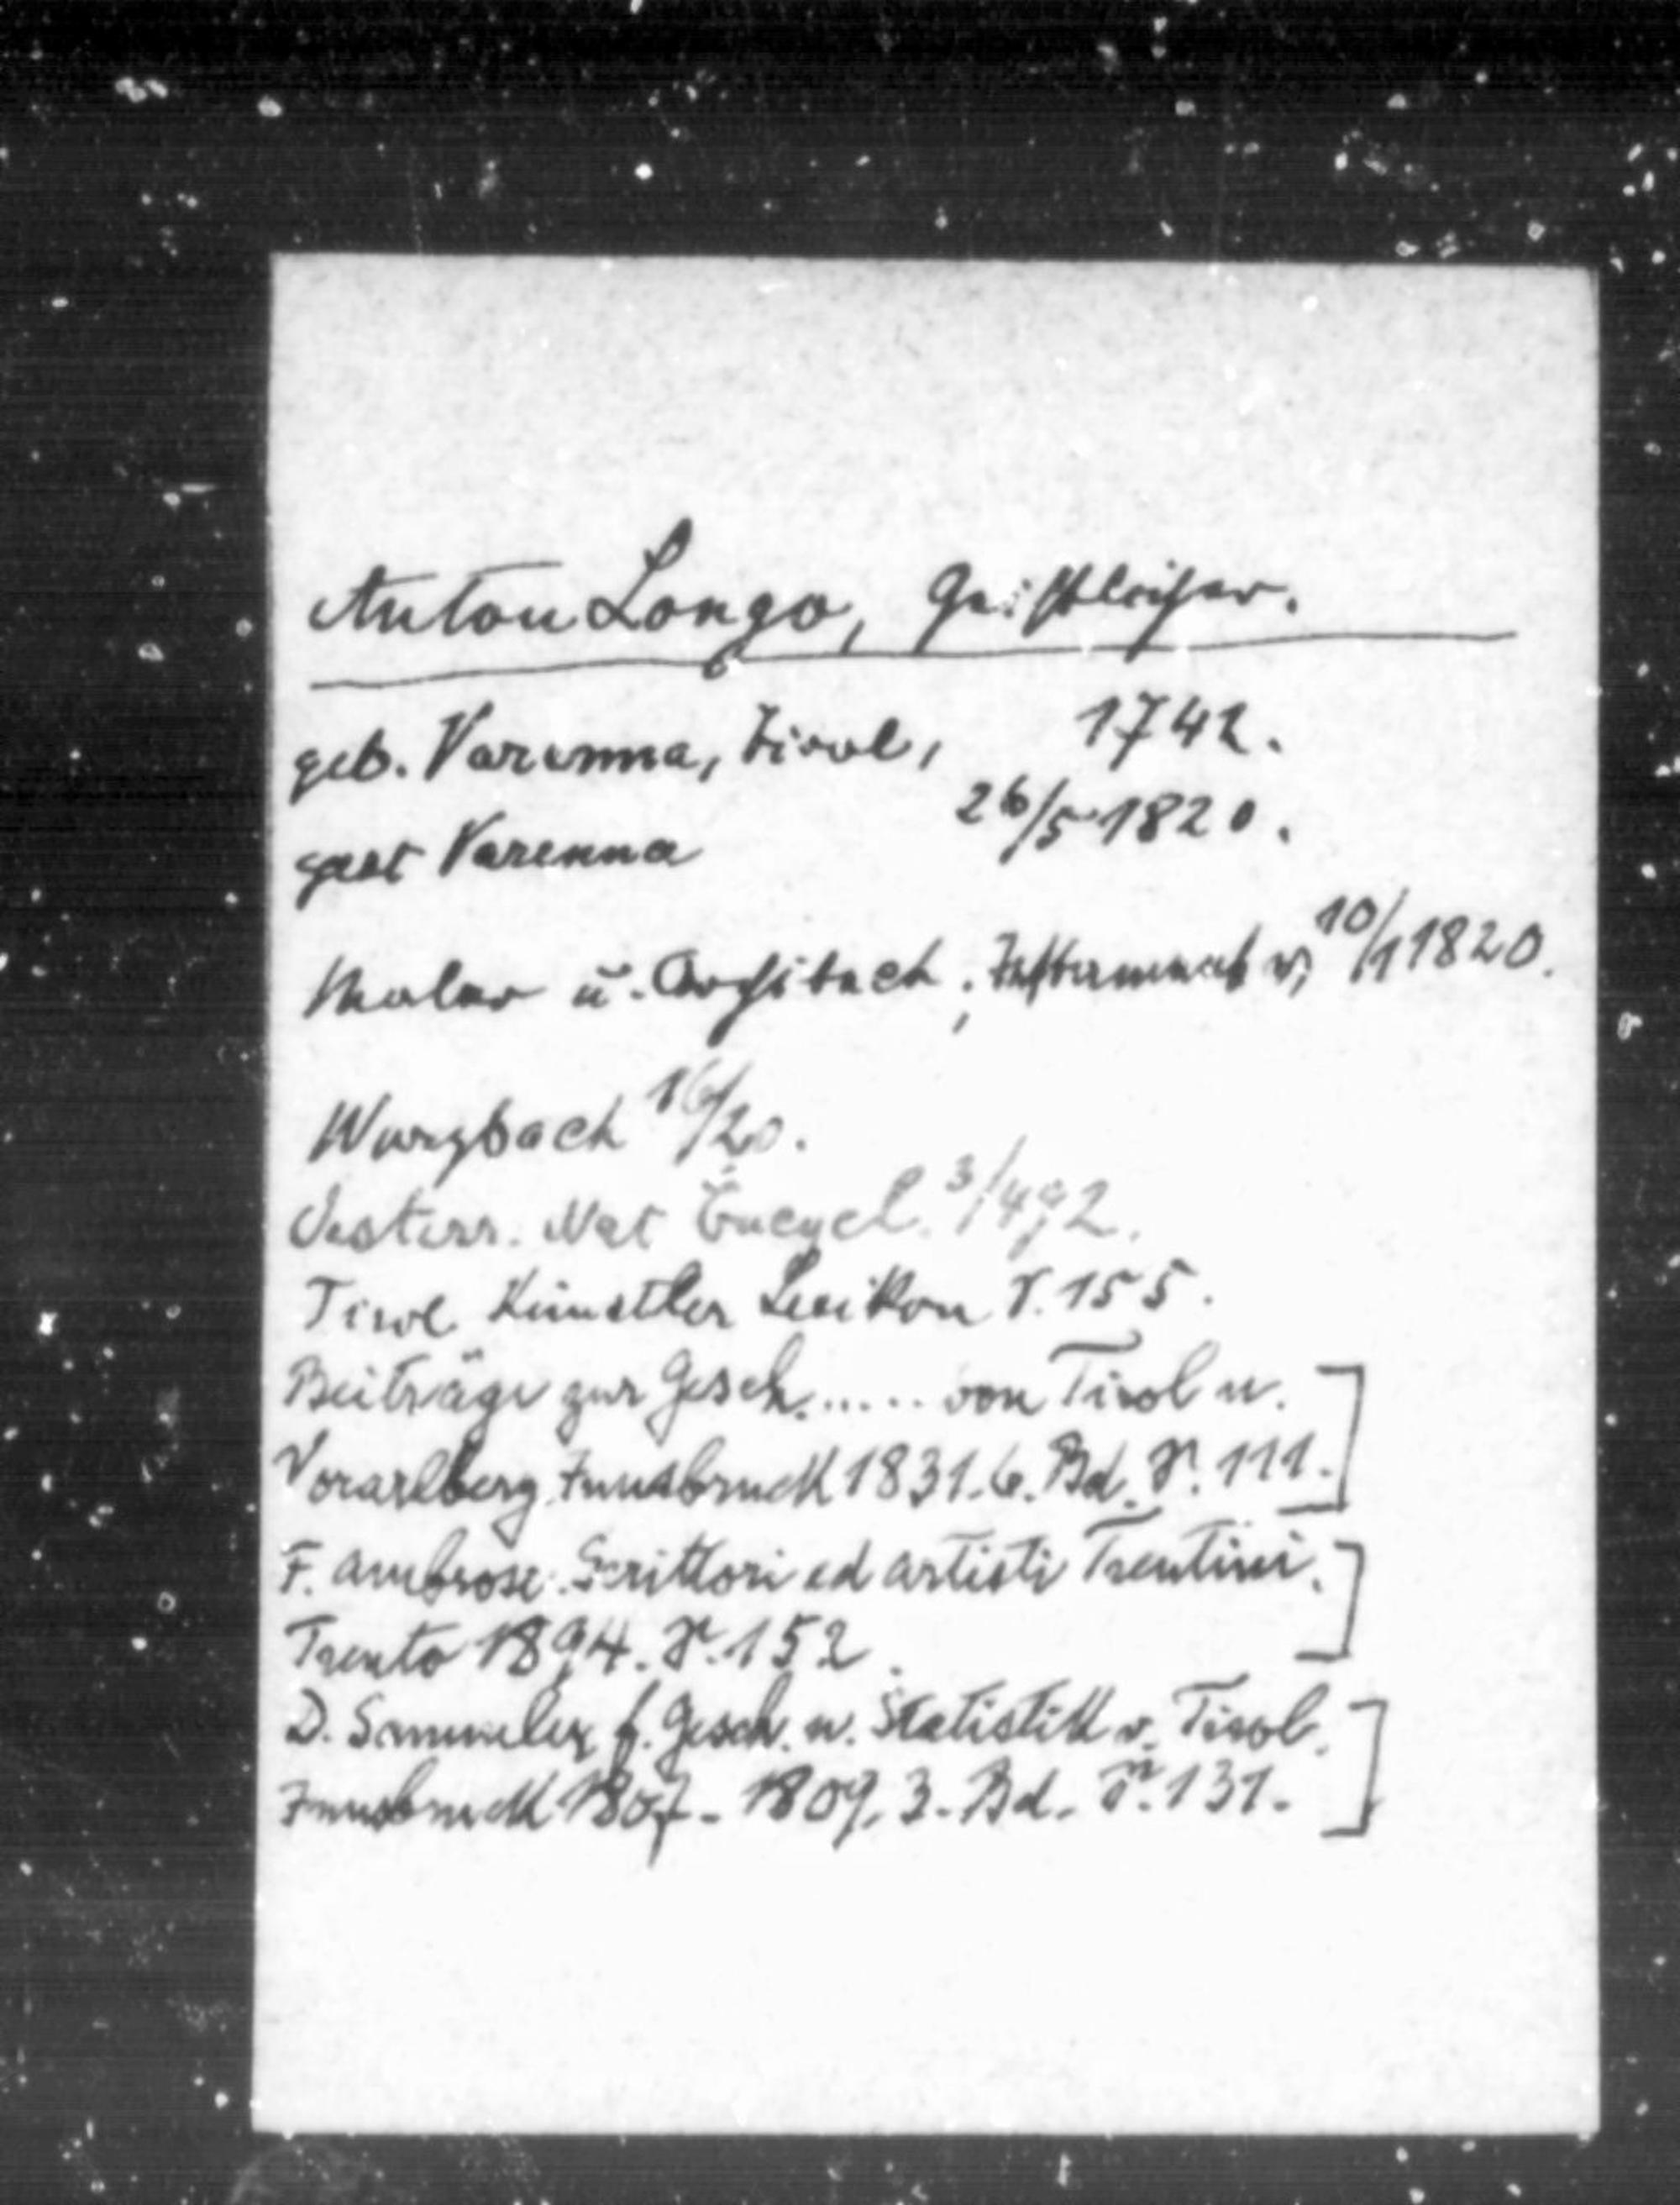 Anton Longo, Geistlicher.
geb. Varenna, Tirol, 1742.
gest Varenna 26/5 1820.
Maler u. Architect; Testament v, 10/1 1820.
Wurzbach 16/20.
Oesterr. Nat Encycl. 3/492.
Tirol. Künstler Lexikon S. 155.
Beiträge zur Gesch. ..... von Tirol u.
Vorarlberg. Innsbruck 1831. 6. Bd. S. 111.
F. Ambrosi: Scrittori ed artisti Trentini.
Trento 1894. S. 152.
D. Sammler f. Gesch. u. Statistik v. Tirol.
Innsbruck 1807-1809. 3. Bd. S. 131.